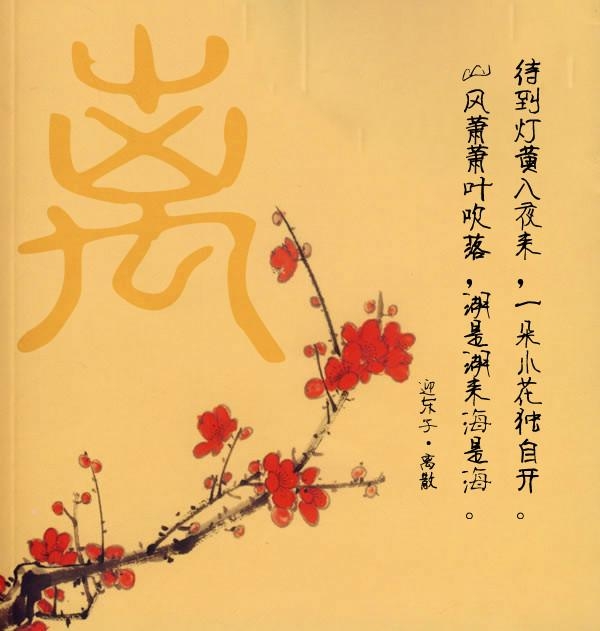 待到灯黄入夜来，一朵小花独自开。
山风萧萧叶吹落，湖是湖来海是海。
迎东子·离散
离